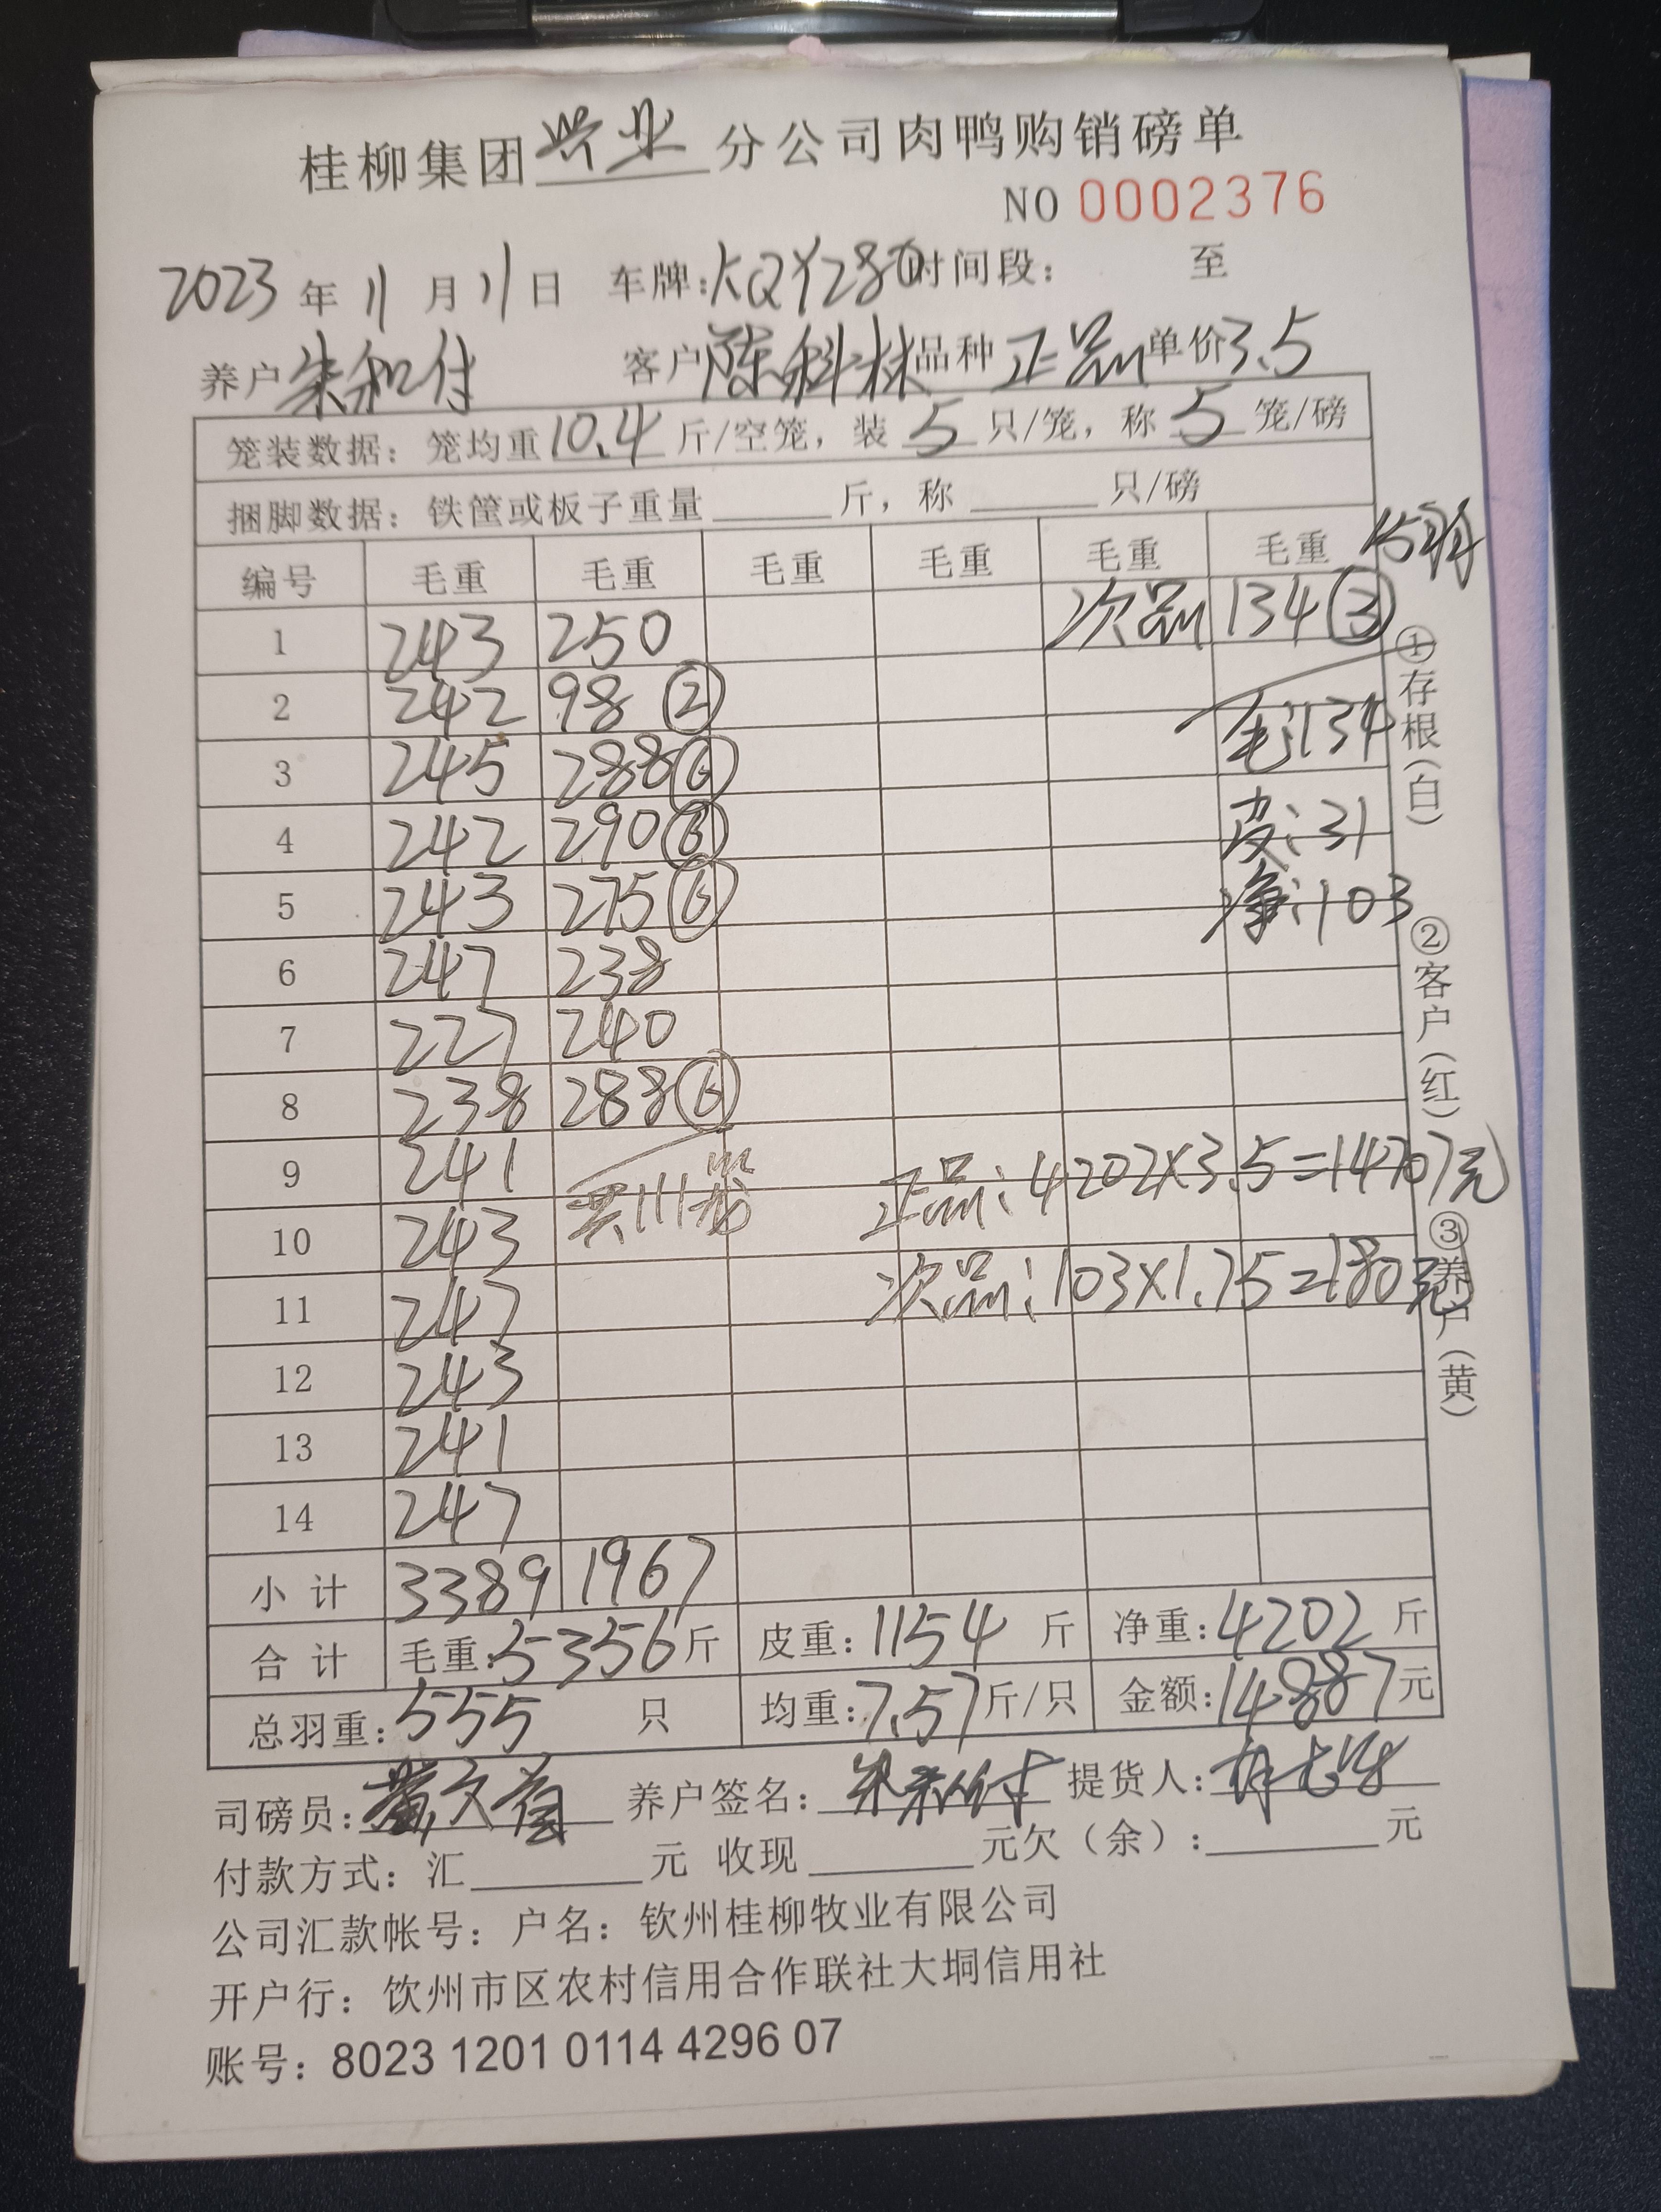 桂柳集团兴业分公司肉鸭购销磅单
NO 0002376
2023年11月11日 车牌:KQY280时间段: 至
养户朱和付 客户陈科林品种正品单价3.5
笼装数据: 笼均重10.4斤/空笼, 装5只/笼, 称5笼/磅
捆脚数据: 铁筐或板子重量____斤, 称____只/磅
编号 毛重 毛重 毛重 毛重 毛重 毛重
1 243 250 次品 134③
2 242 98② 毛:134
3 245 288⑥
4 242 290⑥ 皮:31
5 243 275⑥ 净:103
6 247 238
7 227 240
8 238 288⑥
9 241 共111笼 正品:4202×3.5=14707元
10 243
11 247 次品:103×1.75=180元
12 243
13 241
14 247
小计 3389 1967
合计 毛重:5356斤 皮重:1154斤 净重:4202斤
总羽重:555只 均重:7.57斤/只 金额:14887元
司磅员:黄文 养户签名:朱和付 提货人:
付款方式: 汇____元 收现____元欠(余):____元
公司汇款帐号: 户名: 钦州桂柳牧业有限公司
开户行: 钦州市区农村信用合作联社大垌信用社
账号: 8023 1201 0114 4296 07
①存根(白)
②客户(红)
③养户(黄)